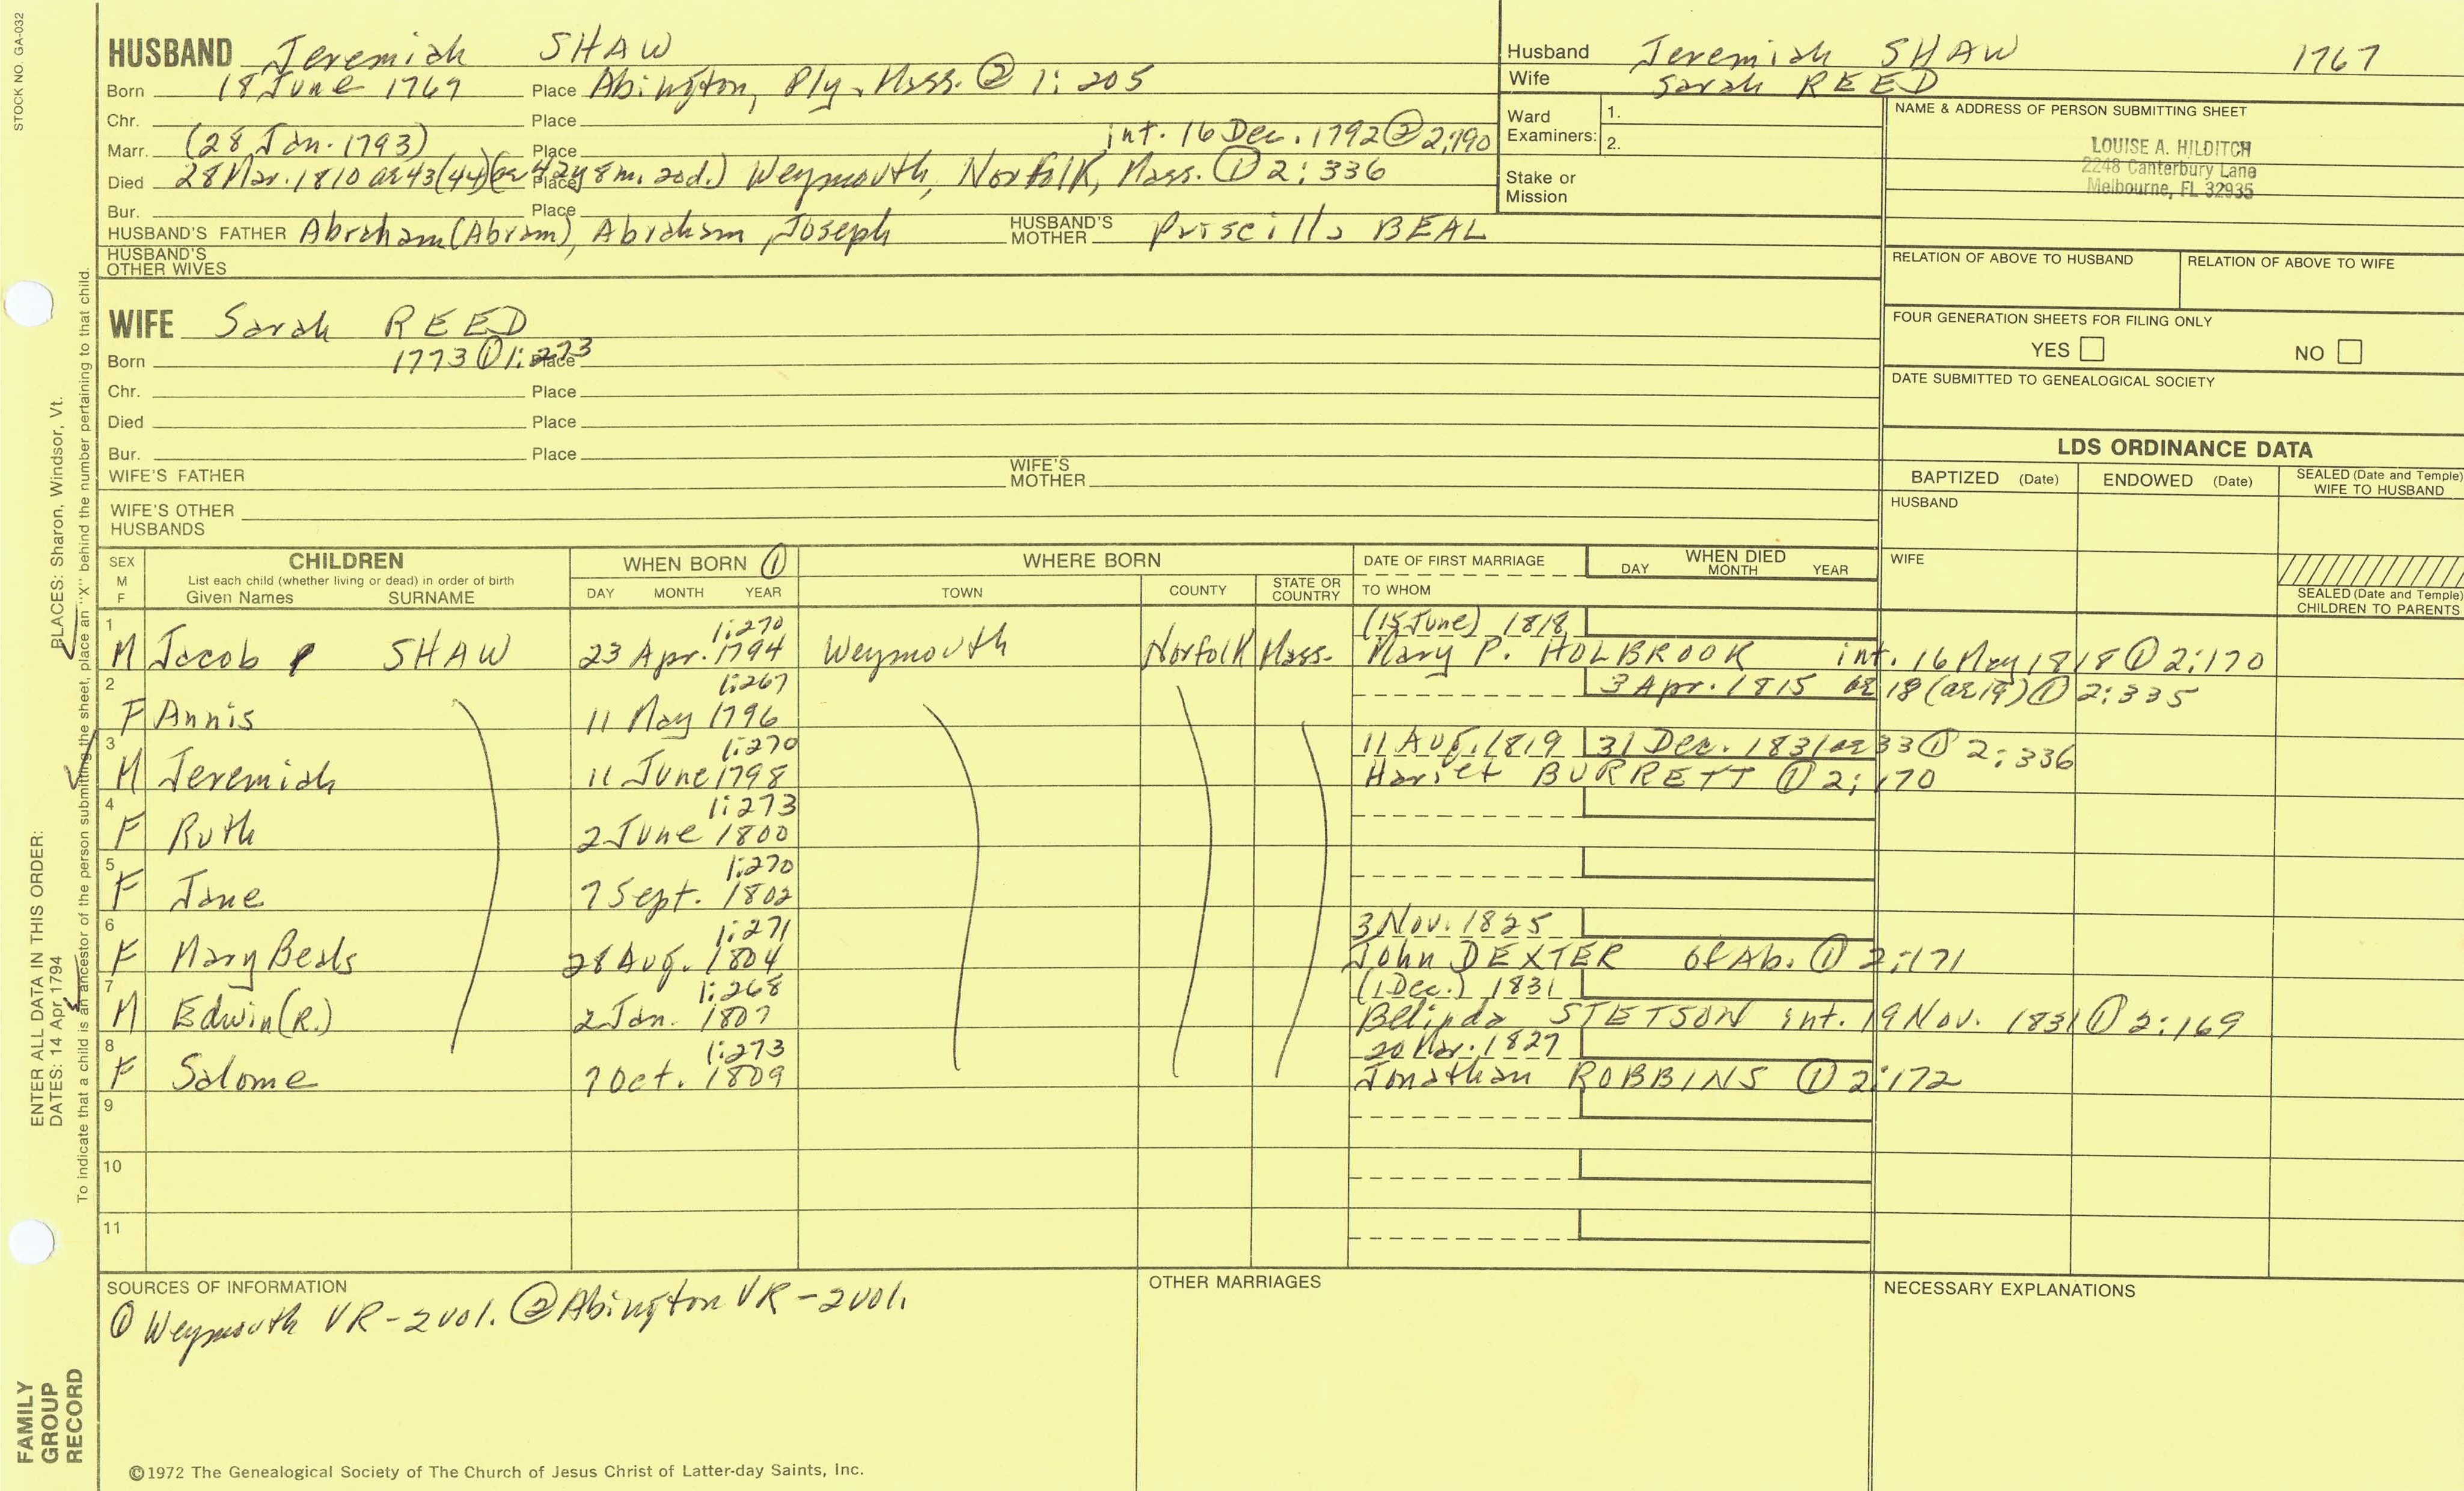 STOCK NO. GA-032
HUSBAND Jeremiah SHAW
Born 18 June 1769 Place Abington, Ply. Mass. ② 1: 205
Chr. Place
Marr. (28 Jan. 1793) Place int. 16 Dec. 1792 ② 2:190
Died 28 Mar. 1810 ae 43 (44) (ae 42y 8m. 20d.) Place Weymouth, Norfolk, Mass. ① 2: 336
Bur. Place
HUSBAND'S FATHER Abraham (Abram), Abraham, Joseph HUSBAND'S MOTHER Priscilla BEAL
HUSBAND'S OTHER WIVES
Husband Jeremiah SHAW 1767
Wife Sarah REED
Ward Examiners: 1.
2.
Stake or Mission
NAME & ADDRESS OF PERSON SUBMITTING SHEET
LOUISE A. HILDITCH
2248 Canterbury Lane
Melbourne, FL 32935
RELATION OF ABOVE TO HUSBAND RELATION OF ABOVE TO WIFE
FOUR GENERATION SHEETS FOR FILING ONLY
YES NO
DATE SUBMITTED TO GENEALOGICAL SOCIETY
WIFE Sarah REED
Born 1773 ① 1: 273 Place
Chr. Place
Died Place
Bur. Place
WIFE'S FATHER WIFE'S MOTHER
WIFE'S OTHER HUSBANDS
LDS ORDINANCE DATA
BAPTIZED (Date) ENDOWED (Date) SEALED (Date and Temple) WIFE TO HUSBAND
HUSBAND
WIFE
SEALED (Date and Temple) CHILDREN TO PARENTS
SEX M F CHILDREN WHEN BORN ① WHERE BORN DATE OF FIRST MARRIAGE WHEN DIED
List each child (whether living or dead) in order of birth
Given Names SURNAME DAY MONTH YEAR TOWN COUNTY STATE OR COUNTRY TO WHOM DAY MONTH YEAR
1 1:270 (15 June) 1818
M Jacob SHAW 23 Apr. 1794 Weymouth Norfolk Mass. Mary P. HOLBROOK int. 16 May 1818 ① 2:170
2 1:267 3 Apr. 1815 ae 18 (ae 19) ① 2:335
F Annis 11 May 1796
3 1:270 11 Aug. 1819 31 Dec. 1831 ae 33 ① 2:336
M Jeremiah 11 June 1798 Hariet BURRETT ① 2:170
4 1:273
F Ruth 2 June 1800
5 1:270
F Jane 7 Sept. 1802
6 1:271 3 Nov. 1825
F Mary Beals 28 Aug. 1804 John DEXTER of Ab. ① 2:171
7 1:268 (1 Dec.) 1831
M Edwin (R.) 2 Jan. 1807 Belinda STETSON int. 19 Nov. 1831 ① 2:169
8 1:273 20 Mar. 1827
F Salome 7 Oct. 1809 Jonathan ROBBINS ① 2:172
9
10
11
SOURCES OF INFORMATION
① Weymouth VR - 2 vol. ② Abington VR - 2 vol.
OTHER MARRIAGES
NECESSARY EXPLANATIONS
©1972 The Genealogical Society of The Church of Jesus Christ of Latter-day Saints, Inc.
FAMILY
GROUP
RECORD
ENTER ALL DATA IN THIS ORDER:
DATES: 14 Apr 1794 PLACES: Sharon, Windsor, Vt.
To indicate that a child is an ancestor of the person submitting the sheet, place an "X" behind the number pertaining to that child.